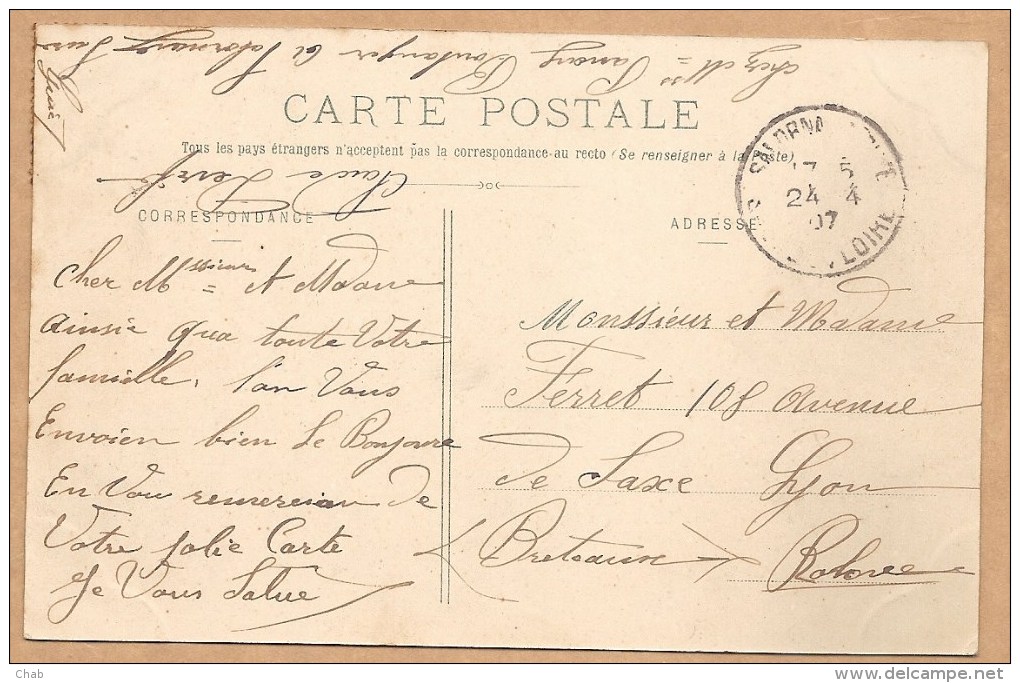 CARTE POSTALE
Tous les pays étrangers n'acceptent pas la correspondance au recto (Se renseigner à la Poste)
CORRESPONDANCE
Cher Mssieurs et Madame
ainsie qua toute Votre
famielle, l'on Vous
Envoien bien le Bonjoure
En Vou remercian de
Votre jolie Carte
Je Vous Salue
Claude
chez Mr
Boulanger
ADRESSE
24 4
07
LOIRE
Monssieur et Madame
Ferret 108 Avenue
de Saxe Lyon
(Broteaux) Rohone
Chab
www.delcampe.net